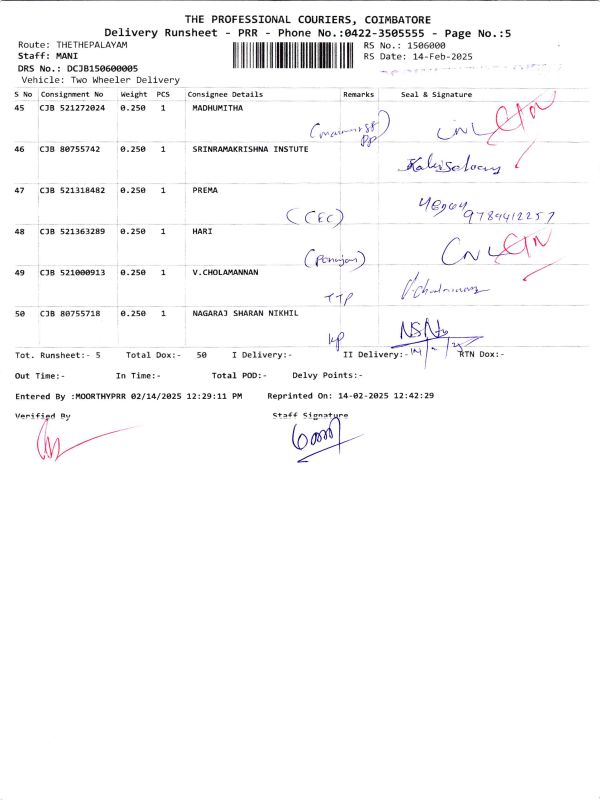 THE PROFESSIONAL COURIERS, COIMBATORE
Delivery Runsheet - PRR - Phone No.:0422-3505555 - Page No.:5
Route: THETHEPALAYAM RS No.: 1506000
Staff: MANI RS Date: 14-Feb-2025
DRS No.: DCJB150600005
Vehicle: Two Wheeler Delivery
S No Consignment No Weight PCS Consignee Details Remarks Seal & Signature
45 CJB 521272024 0.250 1 MADHUMITHA
CNL
46 CJB 80755742 0.250 1 SRINRAMAKRISHNA INSTUTE
47 CJB 521318482 0.250 1 PREMA
(CEC) 9789412257
48 CJB 521363289 0.250 1 HARI
CNL
49 CJB 521000913 0.250 1 V.CHOLAMANNAN
TTP
50 CJB 80755718 0.250 1 NAGARAJ SHARAN NIKHIL
kp
Tot. Runsheet:- 5 Total Dox:- 50 I Delivery:- II Delivery:- RTN Dox:-
Out Time:- In Time:- Total POD:- Delvy Points:-
Entered By :MOORTHYPRR 02/14/2025 12:29:11 PM Reprinted On: 14-02-2025 12:42:29
Verified By Staff Signature